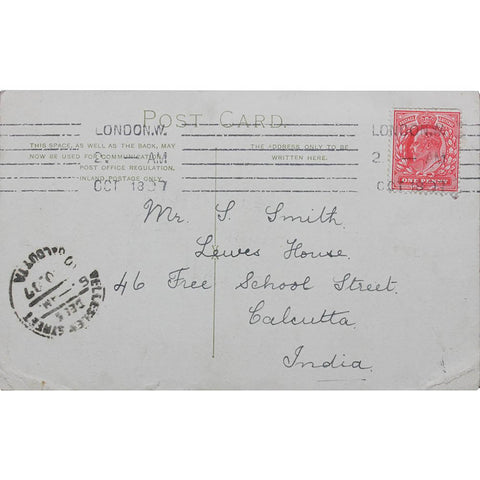 POST CARD.
THIS SPACE, AS WELL AS THE BACK, MAY
NOW BE USED FOR COMMUNICATION.
POST OFFICE REGULATION.
INLAND POSTAGE ONLY.
THE ADDRESS ONLY TO BE
WRITTEN HERE.
LONDON.W.
2 – AM
OCT 18 07
LONDON.W.
2 – M
OCT 18 07
ONE PENNY
Mr. S. Smith.
Lewes House.
46 Free School Street.
Calcutta.
India.
WELLESLEY STREET
CALCUTTA
DEC 5
07